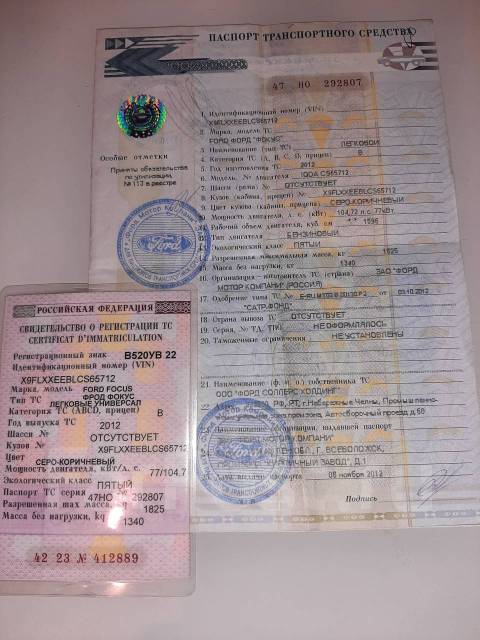 ПАСПОРТ ТРАНСПОРТНОГО СРЕДСТВА
47 НО 292807
1. Идентификационный номер (VIN)
X9FLXXEEBLCS65712
2. Марка, модель ТС
FORD ФОРД "ФОКУС"
3. Наименование (тип ТС) ЛЕГКОВОЙ
4. Категория ТС (А, В, С, D, прицеп) B
5. Год изготовления ТС 2012
6. Модель, № двигателя IQDA CS65712
7. Шасси (рама) № ОТСУТСТВУЕТ
8. Кузов (кабина, прицеп) № X9FLXXEEBLCS65712
9. Цвет кузова (кабины, прицепа) СЕРО-КОРИЧНЕВЫЙ
10. Мощность двигателя, л. с. (кВт) 104,72 л.с. 77кВт
11. Рабочий объем двигателя, куб. см 1596
12. Тип двигателя БЕНЗИНОВЫЙ
13. Экологический класс ПЯТЫЙ
14. Разрешенная максимальная масса, кг 1825
15. Масса без нагрузки, кг 1340
16. Организация - изготовитель ТС (страна) ЗАО "ФОРД
МОТОР КОМПАНИ" (РОССИЯ)
17. Одобрение типа ТС № 03.10.2012
"САТР-ФОНД"
18. Страна вывоза ТС ОТСУТСТВУЕТ
19. Серия, № ТД, ТПО НЕ ОФОРМЛЯЛОСЬ
20. Таможенные ограничения НЕ УСТАНОВЛЕНЫ
21. Наименование (ф. и. о.) собственника ТС
ООО "ФОРД СОЛЛЕРС ХОЛДИНГ"
РФ, РТ, г.Набережные Челны, Промышленно-
зона, Автосборочный проезд д.68
организации, выдавшей паспорт
МОТОР КОМПАНИ"
ОБЛ, Г. ВСЕВОЛОЖСК,
ЗАВОД", Д.1
Дата выдачи паспорта 08 ноября 2012
Подпись
Особые отметки
Приняты обязательства
по утилизации,
№ 113 в реестре
Ford
Ford
РОССИЙСКАЯ ФЕДЕРАЦИЯ
СВИДЕТЕЛЬСТВО О РЕГИСТРАЦИИ ТС
CERTIFICAT D'IMMATRICULATION
Регистрационный знак В520УВ 22
Идентификационный номер (VIN)
X9FLXXEEBLCS65712
Марка, модель FORD FOCUS
ФРОД ФОКУС
Тип ТС ЛЕГКОВЫЕ УНИВЕРСАЛ
Категория ТС (ABCD, прицеп) B
Год выпуска ТС 2012
Шасси № ОТСУТСТВУЕТ
Кузов № X9FLXXEEBLCS65712
Цвет СЕРО-КОРИЧНЕВЫЙ
Мощность двигателя, кВт/л. с. 77/104.7
Экологический класс ПЯТЫЙ
Паспорт ТС серия 47НО № 292807
Разрешенная max масса, kg 1825
Масса без нагрузки, kg 1340
42 23 № 412889